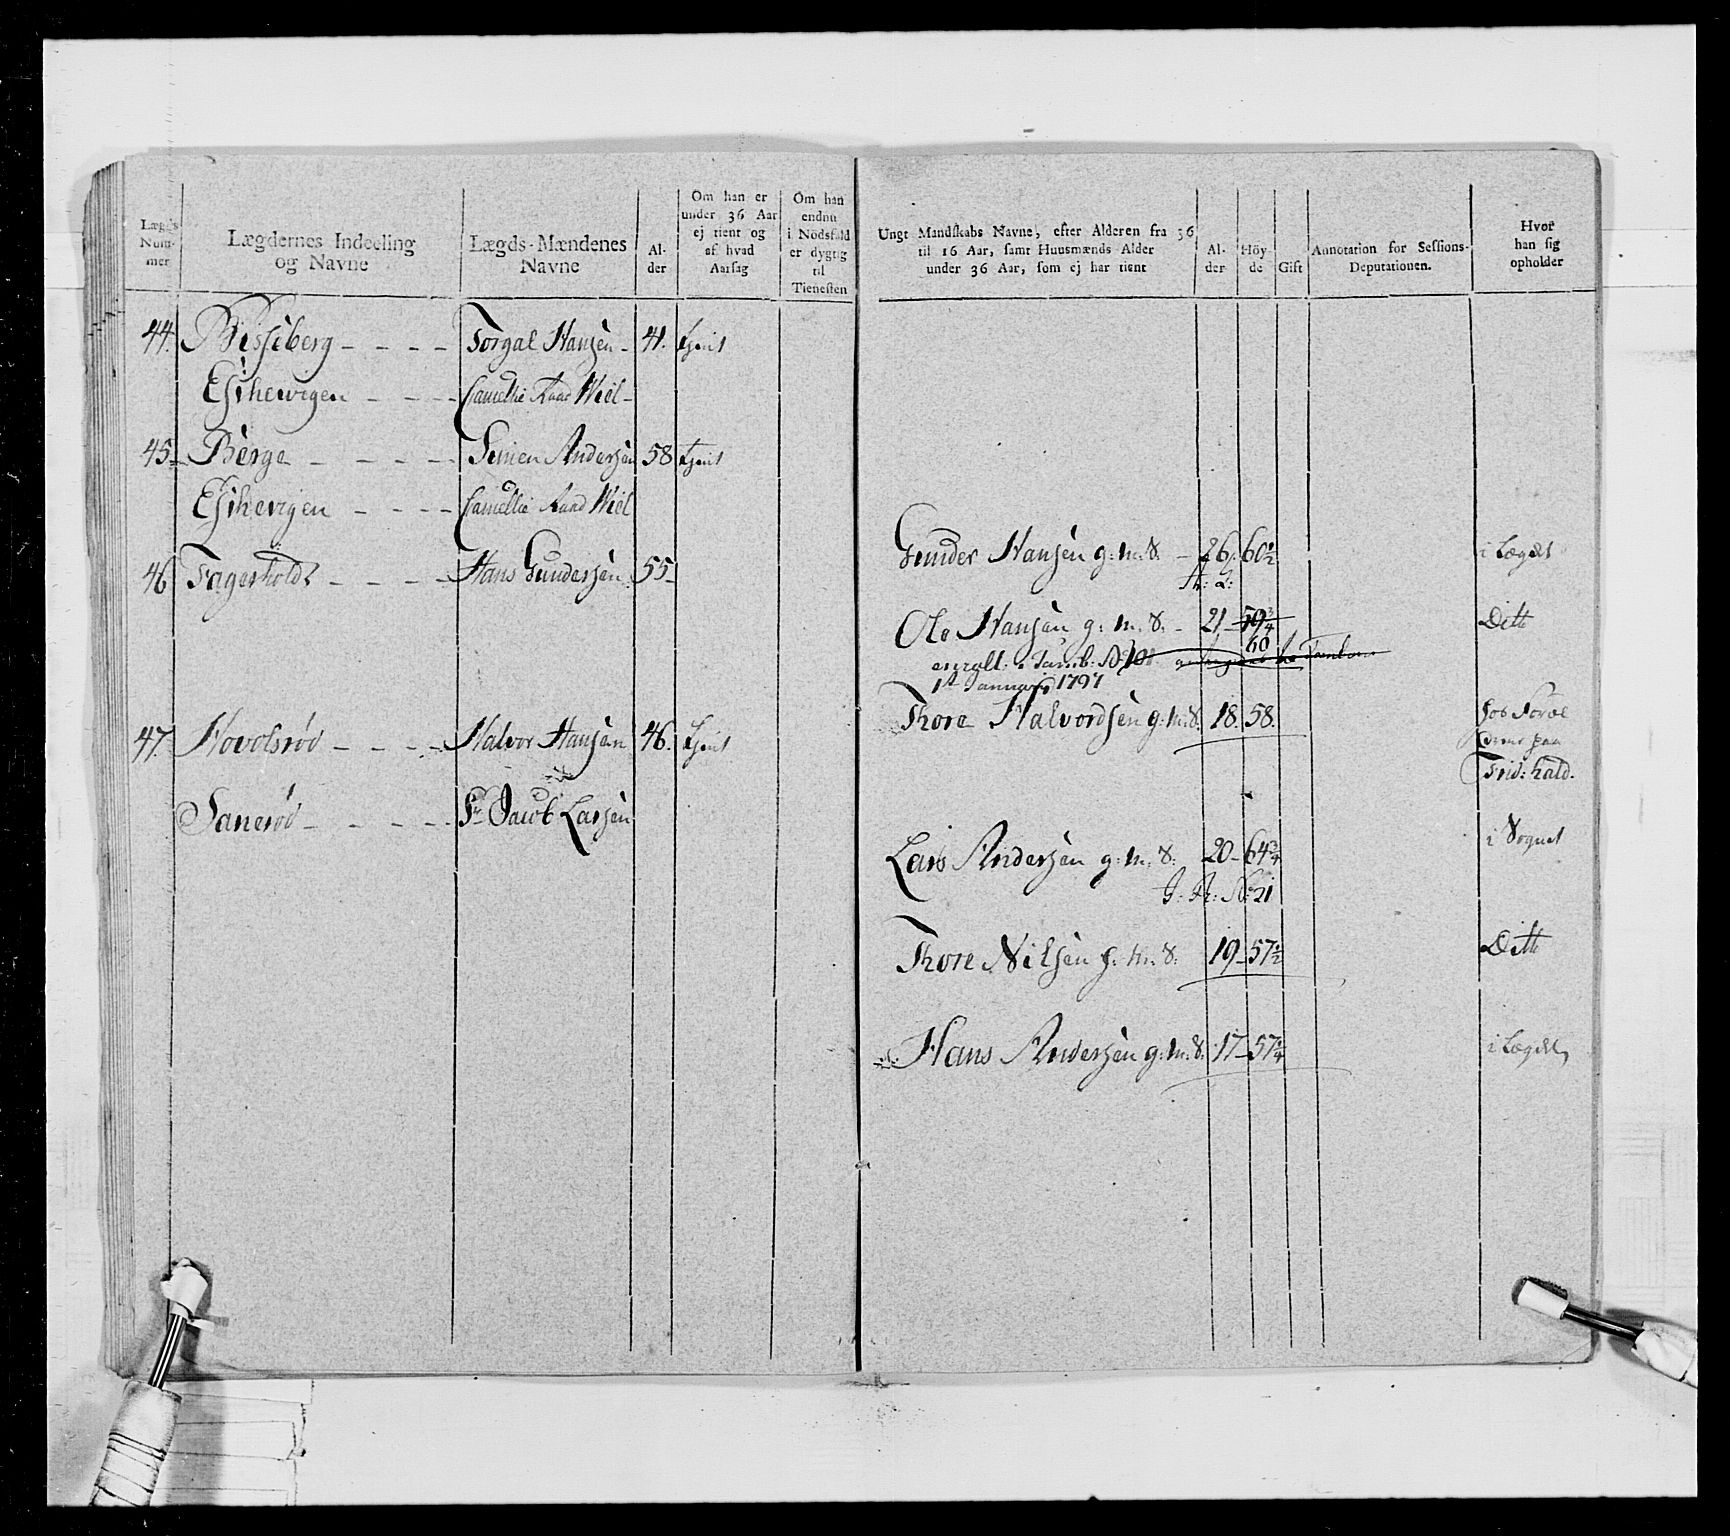 Lægds Num- mer
Lægdernes Indeeling og Navne
Lægds-Mændenes Navne
Al- der
Om han er under 36 Aar ej tient og af hvad Aarsag
Om han endnu i Nödsfald er dygtig til Tienesten
44. Bisseberg - - - - Torgal Hansen - 41. tjent
Eschevigen - - - - Camellie Raad Wiel -
45 - Berge - - - - Simen Andersen 58 tjent
Eschevigen - - - - Camellie Raad Wiel
46 Fagerholdt - - - - Hans Gundersen. 55 -
47. Hovolsrød - - - - Halvor Hansen 46. tjent
Sanerød - - - - Sr Jacob Larsen
Ungt Mandskabs Navne, efter Alderen fra 36 til 16 Aar, samt Huusmænds Alder under 36 Aar, som ej har tient
Al- der
Höy- de
Gift
Annotation for Sessions- Deputationen.
Hvor han sig opholder
Gunder Hansen g: m: S. - 26. 60½ i Lægdet
Ole Hansen g: m. S. - 21 - 59¾ Ditto
60
enroll: Tamb: No 10
1st Januarij 1797
Thore Halvordsen g: m: S. 18. 58. hos Foræl
derne paa
Frid: hald.
Lars Andersen g: m. S: 20 - 64¾ i Sognet
No: 21
Thore Nilsen g: m. S: 19 - 57½ Ditto
Hans Andersen g: m: S. 17 - 57¼ i Lægdet